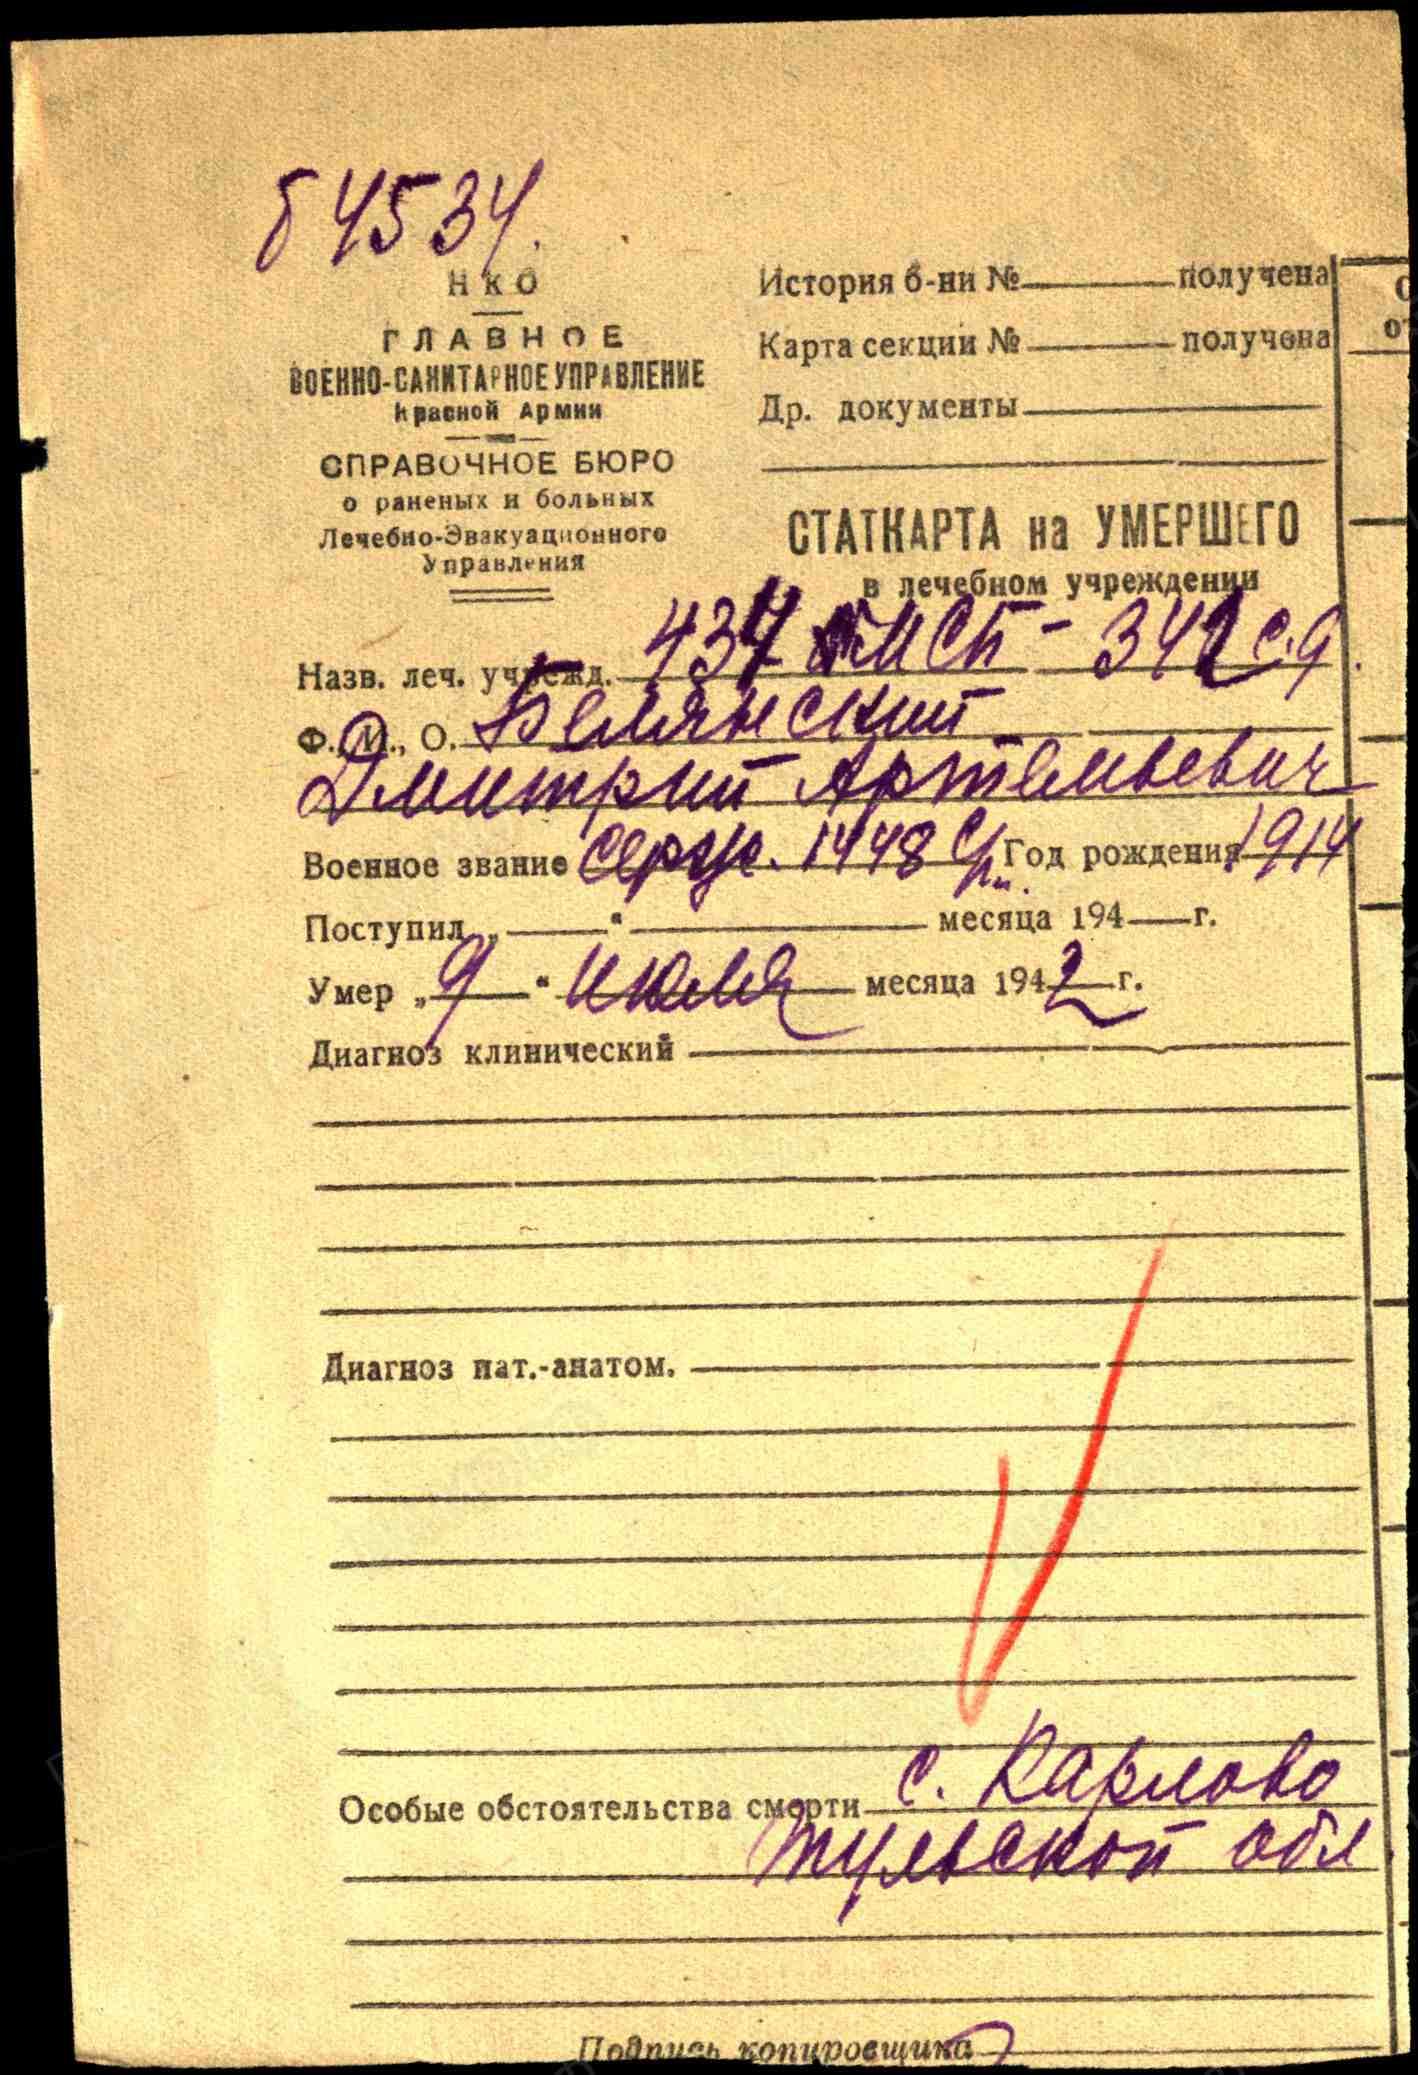 54534.
НКО
ГЛАВНОЕ
ВОЕННО-САНИТАРНОЕ УПРАВЛЕНИЕ
Красной Армии
СПРАВОЧНОЕ БЮРО
о раненых и больных
Лечебно-Эвакуационного
Управления
История б-ни № получена
Карта секции № получена
Др. документы
СТАТКАРТА на УМЕРШЕГО
в лечебном учреждении
Назв. леч. учрежд. 434 МСБ - 342 с.д.
Ф., И., О. Белянский
Дмитрий Артемьевич
Военное звание серж. 1448 с/п. Год рождения 1914
Поступил „ “ месяца 194 г.
Умер „9“ июля месяца 1942 г.
Диагноз клинический
Диагноз пат.-анатом.
Особые обстоятельства смерти с. Карлово
Тульской обл
Подпись копировщика